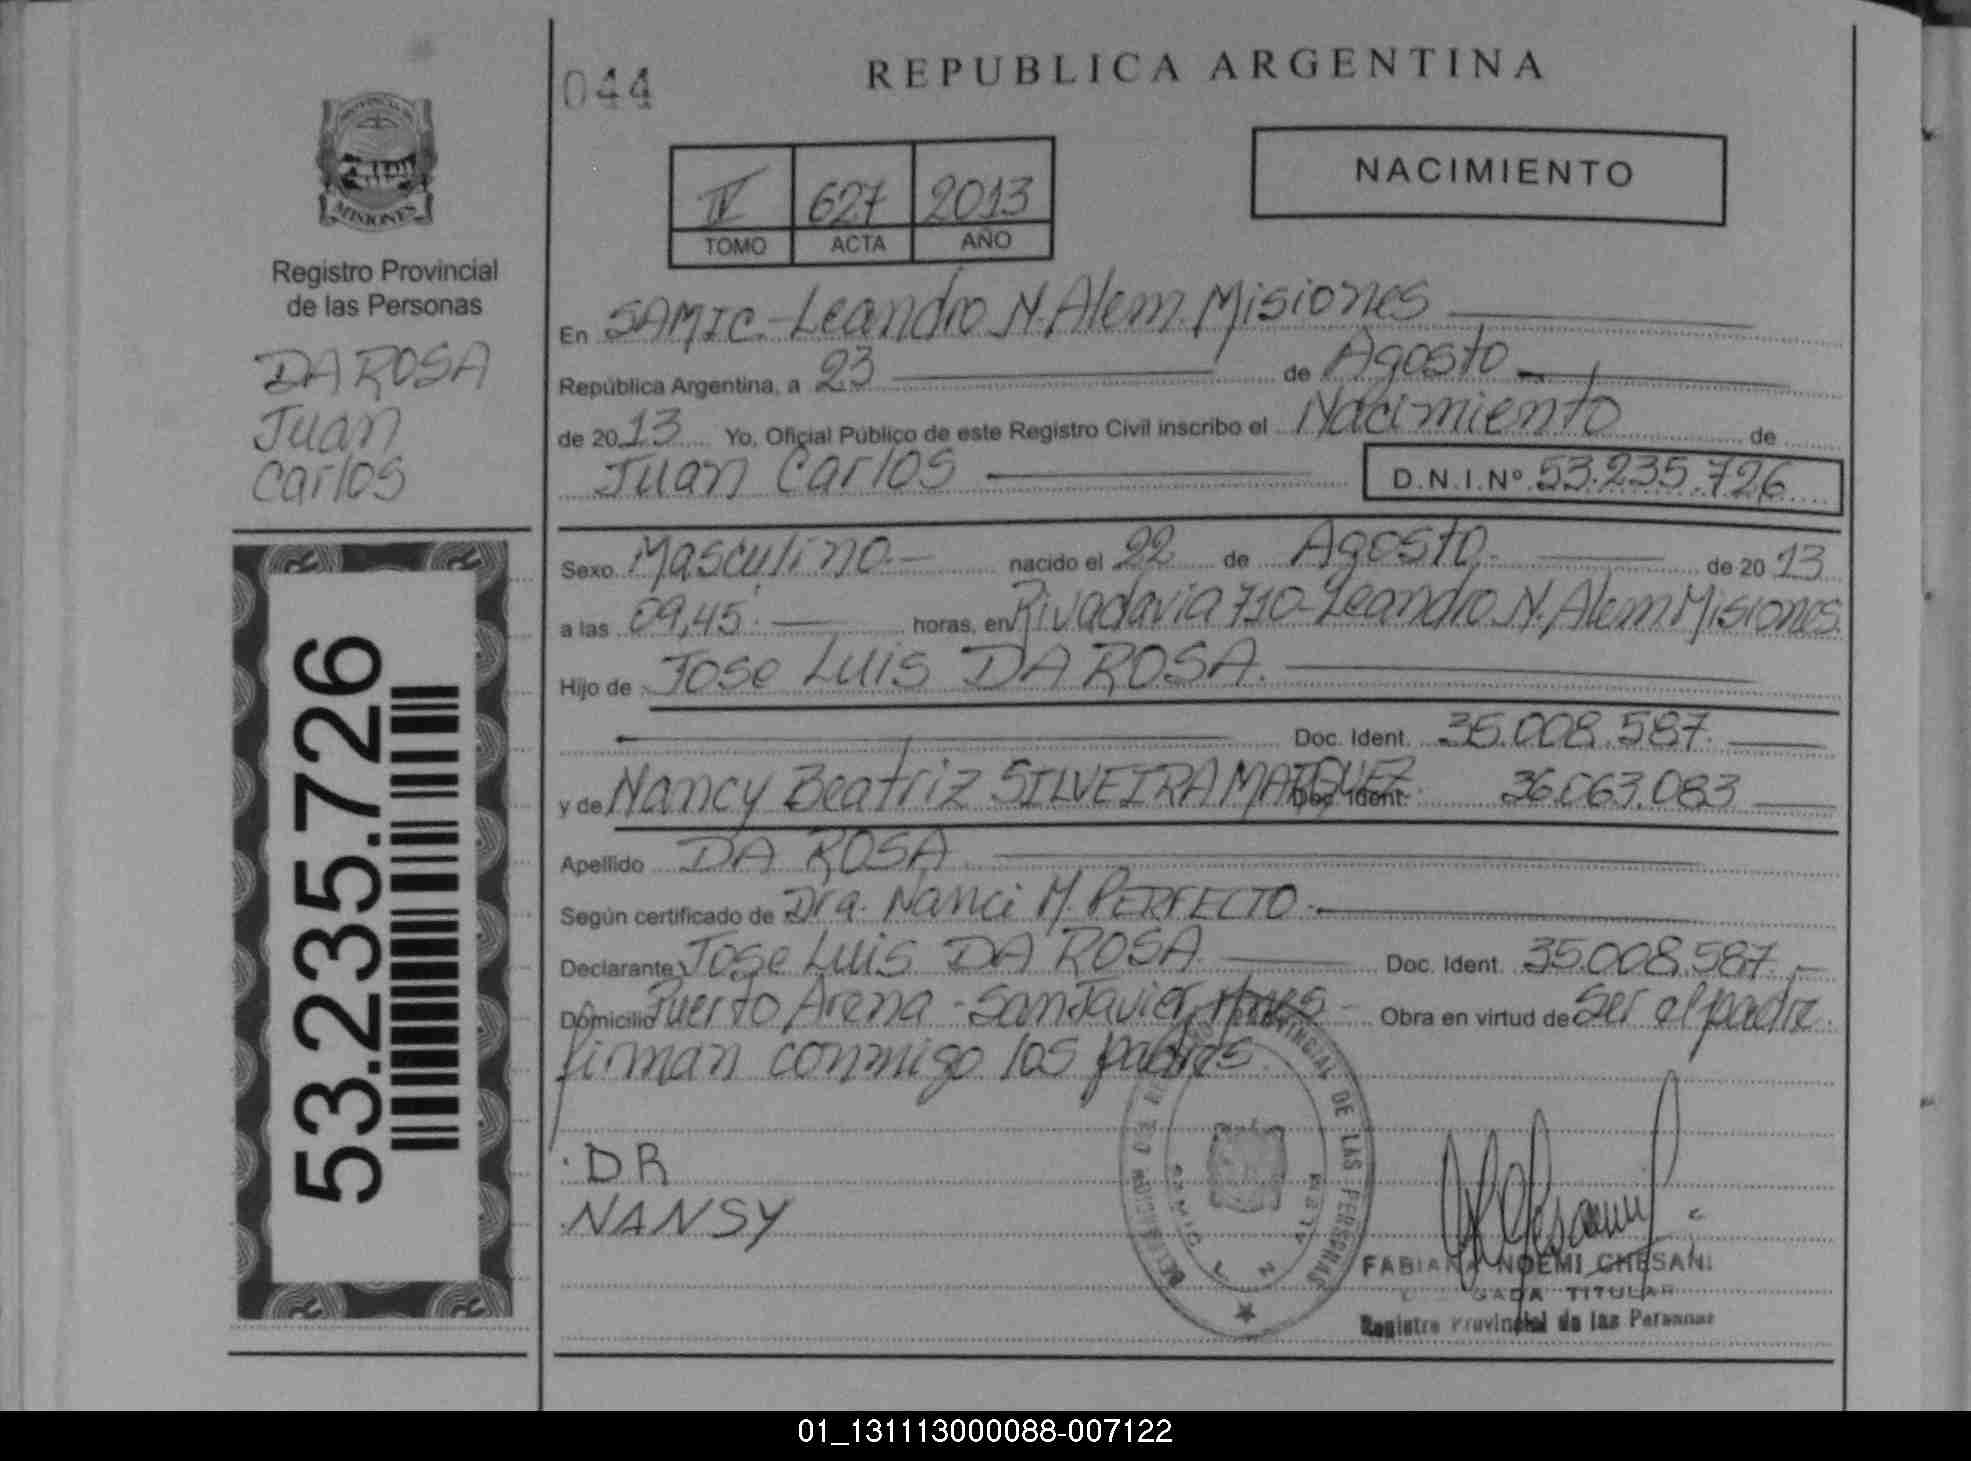 044
REPUBLICA ARGENTINA
MISIONES
Registro Provincial
de las Personas
DA ROSA
Juan
Carlos
IV 627 2013
TOMO ACTA AÑO
NACIMIENTO
En SAMIC.-Leandro N. Alem. Misiones
República Argentina, a 23 de Agosto
de 2013 Yo, Oficial Público de este Registro Civil inscribo el Nacimiento de
Juan Carlos D.N.I.Nº 53.235.726
Sexo Masculino.- nacido el 22 de Agosto.- de 2013
a las 09,45. horas, en Rivadavia 710-Leandro N. Alem Misiones.
Hijo de Jose Luis DA ROSA.
Doc. Ident. 35.008.587.
y de Nancy Beatriz SILVEIRA MARQUEZ Doc. Ident. 36.063.083
Apellido DA ROSA.
Según certificado de Dra. Nanci M. PERFECTO.-
Declarante Jose Luis DA ROSA. Doc. Ident. 35.008.587.-
Domicilio Puerto Arena - San Javier, Mnes - Obra en virtud de Ser el padre.
firman conmigo los padres.
DR
NANSY
53.235.726
PROVINCIAL DE LAS PERSONAS
SAMIC L N ALEM
FABIANA NOEMI CHESANI
TITULAR
Registro Provincial de las Personas
01_131113000088-007122